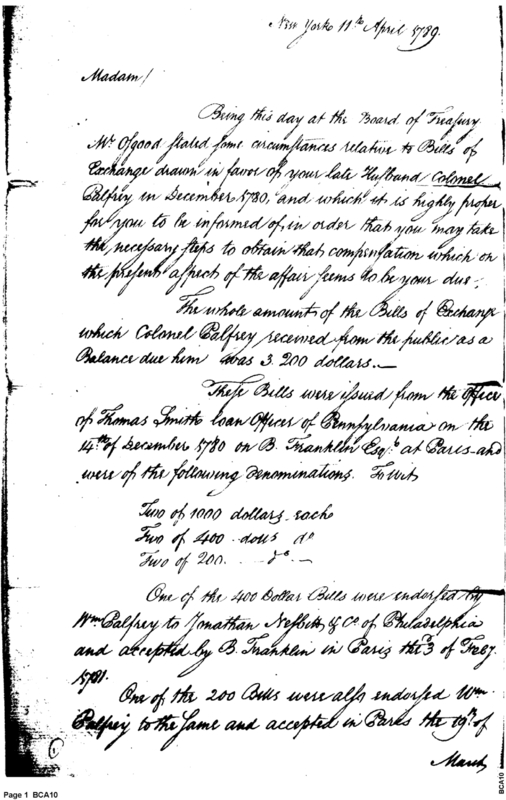 New York 11th April 1789.
Madam!
Being this day at the Board of Treasury
Mr. Osgood stated some circumstances relative to Bills of
Exchange drawn in favor of your late Husband Colonel
Palfrey in December 1780, and which it is highly proper
for you to be informed of, in order that you may take
the necessary steps to obtain that compensation which on
the present aspect of the affair seems to be your due.
The whole amount of the Bills of Exchange
which Colonel Palfrey received from the public as a
Balance due him was 3.200 dollars.—
These Bills were issued from the Office
of Thomas Smith Loan Officer of Pennsylvania on the
14th of December 1780 on B. Franklin Esqr. at Paris and
were of the following denominations. To Wit
Two of 1000 dollars each
Two of 400 dolls do
Two of 200 .. do —
One of the 400 Dollar Bills were endorsed by
Wm Palfrey to Jonathan Nesbitt & Co of Philadelphia
and accepted by B. Franklin in Paris the 3 of Feby
1781.
One of the 200 Bills were also endorsed Wm
Palfrey to the same and accepted in Paris the 19th of
March
1
Page 1 BCA10
BCA10